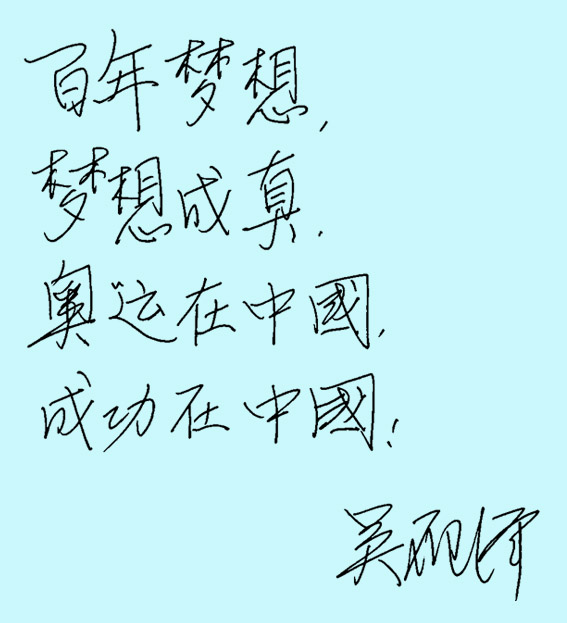 百年梦想,
梦想成真.
奥运在中國,
成功在中國!
吴